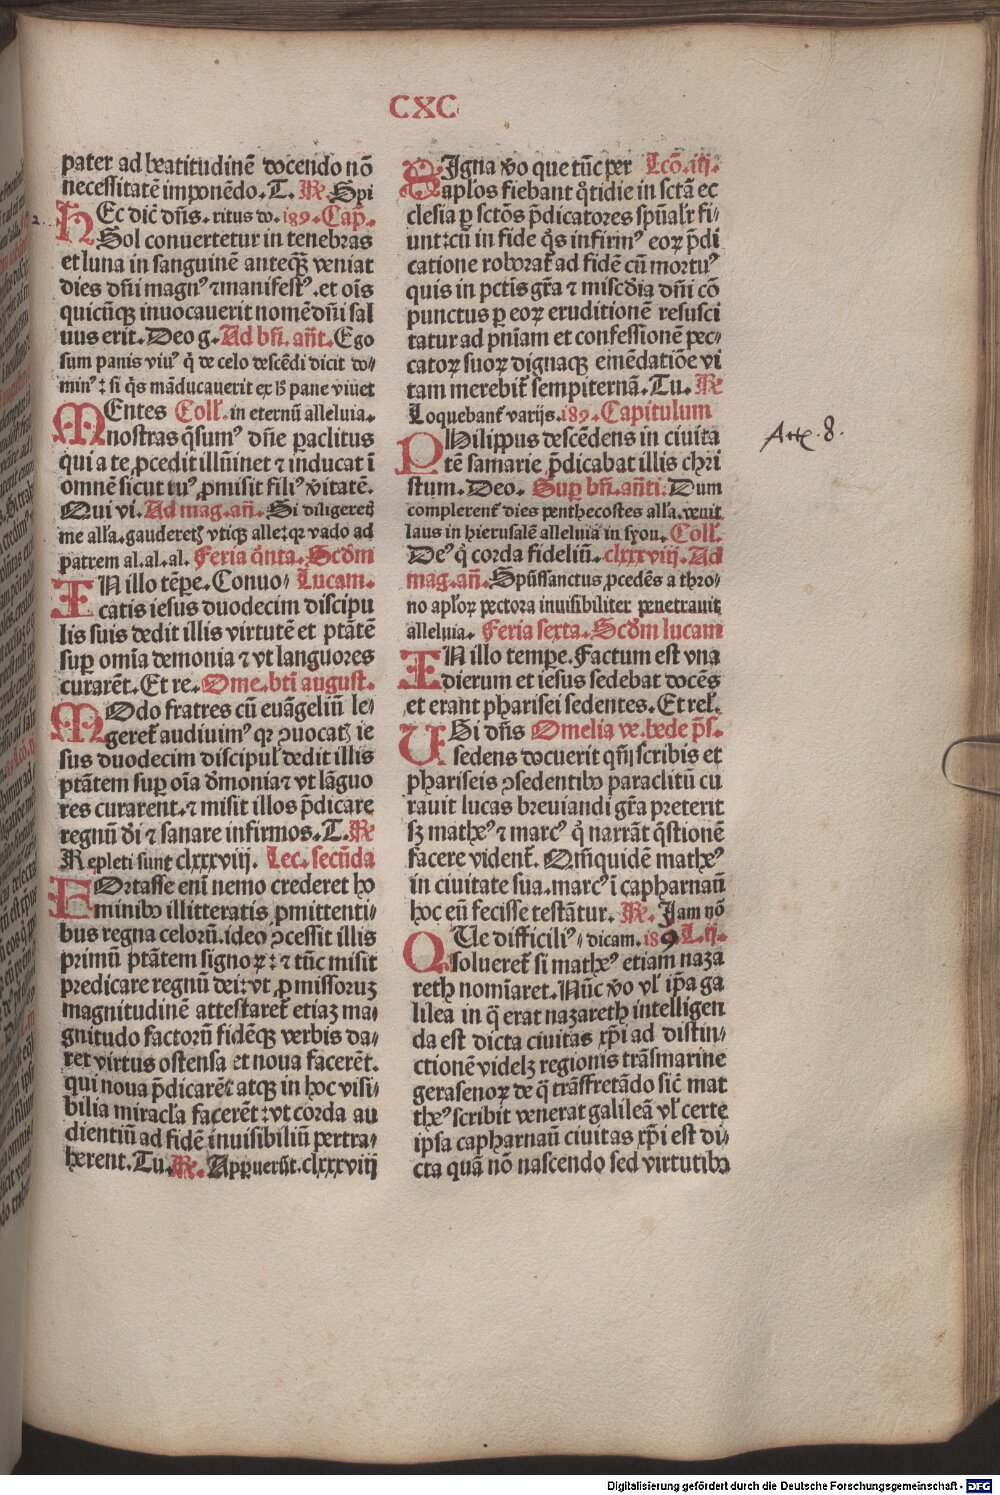 CXC
pater ad beatitudinē docendo nō
necessitatē imponēdo. T. R. Spi
HEc dic̄ dn̄s. ritus do. 189. Cap̄.
Sol conuertetur in tenebras
et luna in sanguinē anteqꝫ veniat
dies dn̄i magnꝰ ⁊ manifestꝰ. et oīs
quicūqꝫ inuocauerit nomē dn̄i sal
uus erit. Deo g. Ad bn̄. an̄t. Ego
sum panis viuꝰ q̇ de celo descēdi dicit do-
minꝰ: si q̇s māducauerit ex hͦ pane viuet
MEntes Coll. in eternū alleluia.
nostras q̄sumꝰ dn̄e paclitus
qui a te ꝓcedit illūinet ⁊ inducat ī
omnē sicut tuꝰ ꝓmisit filiꝰ v̇itatē.
Qui vi. Ad mag. an̄. Si diligeretꝭ
me alla. gauderetꝭ vtiqꝫ alle: qꝛ vado ad
patrem al. al. al. Feria q̇nta. Scd̄m
IN illo tēpe. Conuo- Lucam.
catis iesus duodecim discipu
lis suis dedit illis virtutē et ptātē
suꝑ omīa demonia ⁊ vt languores
curarēt. Et re. Ome. bt̄i august.
MOdo fratres cū euāgeliū le-
geret̉ audiuimꝰ qꝛ ꝯuocatꝭ ie
sus duodecim discipul̓ dedit illis
ptātem suꝑ oīa dm̄onia ⁊ vt lāguo
res curarent. ⁊ misit illos p̄dicare
regnū dei ⁊ sanare infirmos. T. R
Repleti sunt clxxxviij. Lec. secūda
FOrtasse enī nemo crederet ho
minibꝰ illitteratis ꝓmittenti-
bus regna celorū. ideo ꝯcessit illis
primū ptātem signoꝝ: ⁊ tūc misit
predicare regnū dei: vt ꝓmissoruꝫ
magnitudinē attestaret̉ etiaꝫ ma-
gnitudo factorū fidēqꝫ verbis da-
ret virtus ostensa et noua facerēt.
qui noua p̄dicarēt atqꝫ in hoc visi-
bilia miracl̓a facerēt: vt corda au
dientiū ad fidē inuisibiliū pertra-
herent. Tu. R. Apparuerūt. clxxxviij
SIgna v̇o que tūc per Lcō. iij.
aplos fiebant q̇tidie in sctā ec
clesia ꝑ sctōs p̄dicatores spūalr̄ fi-
unt: cū in fide q̇s infirmꝰ eoꝝ p̄di
catione roborat̉ ad fidē cū mortuꝰ
quis in pctīs gr̄a ⁊ misc̄dia dn̄i cō
punctus ꝑ eoꝝ eruditionē resusci
tatur ad pn̄iam et confessionē pec-
catoꝝ suoꝝ dignaqꝫ emēdatiōe vi
tam merebit̉ sempiternā. Tu. R
Loquebant̉ varijs. 189. Capitulum
PHilippus descēdens in ciuita
tē samarie p̄dicabat illis chri
stum. Deo. Suꝑ bn̄. an̄ti. Dum
complerent̉ dies penthecostes alla. venit
laus in hierusalē alleluia in syon. Coll.
Deꝰ q̇ corda fideliū. clxxxviij. Ad
mag. an̄. Spūssanctus ꝓcedēs a thro-
no aploꝝ pectora inuisibiliter penetrauit
alleluia. Feria sexta. Scd̄m lucam
IN illo tempe. Factum est vna
dierum et iesus sedebat docēs
et erant pharisei sedentes. Et rel.
UBi dn̄s Omelia ve. bede p̄s.
sedens docuerit qn̄ scribis et
phariseis ꝯsedentibꝰ paraclitū cu
rauit lucas breuiandi gr̄a preterit
sꝫ matheꝰ ⁊ marcꝰ q̇ narrāt q̄stionē
facere vident̉. Qn̄iquidē matheꝰ
in ciuitate sua. marcꝰ ī capharnaū
hoc eū fecisse testātur. R. Jam nō
QUe difficiliꝰ- dicam. 189. L. ij.
solueret̉ si matheꝰ etiam naza
reth nomīaret. Nūc v̇o vl̓ ip̄a ga
lilea in q̄ erat nazareth intelligen
da est dicta ciuitas xp̄i ad distin-
ctionē videlꝫ regionis trāsmarine
gerasenoꝝ de q̄ trāffretādo sic̄ mat
theꝰ scribit venerat galileā vl̓ certe
ipsa capharnaū ciuitas xp̄i est di-
cta quā nō nascendo sed virtutibꝰ
Act. 8.
Digitalisierung gefördert durch die Deutsche Forschungsgemeinschaft - DFG